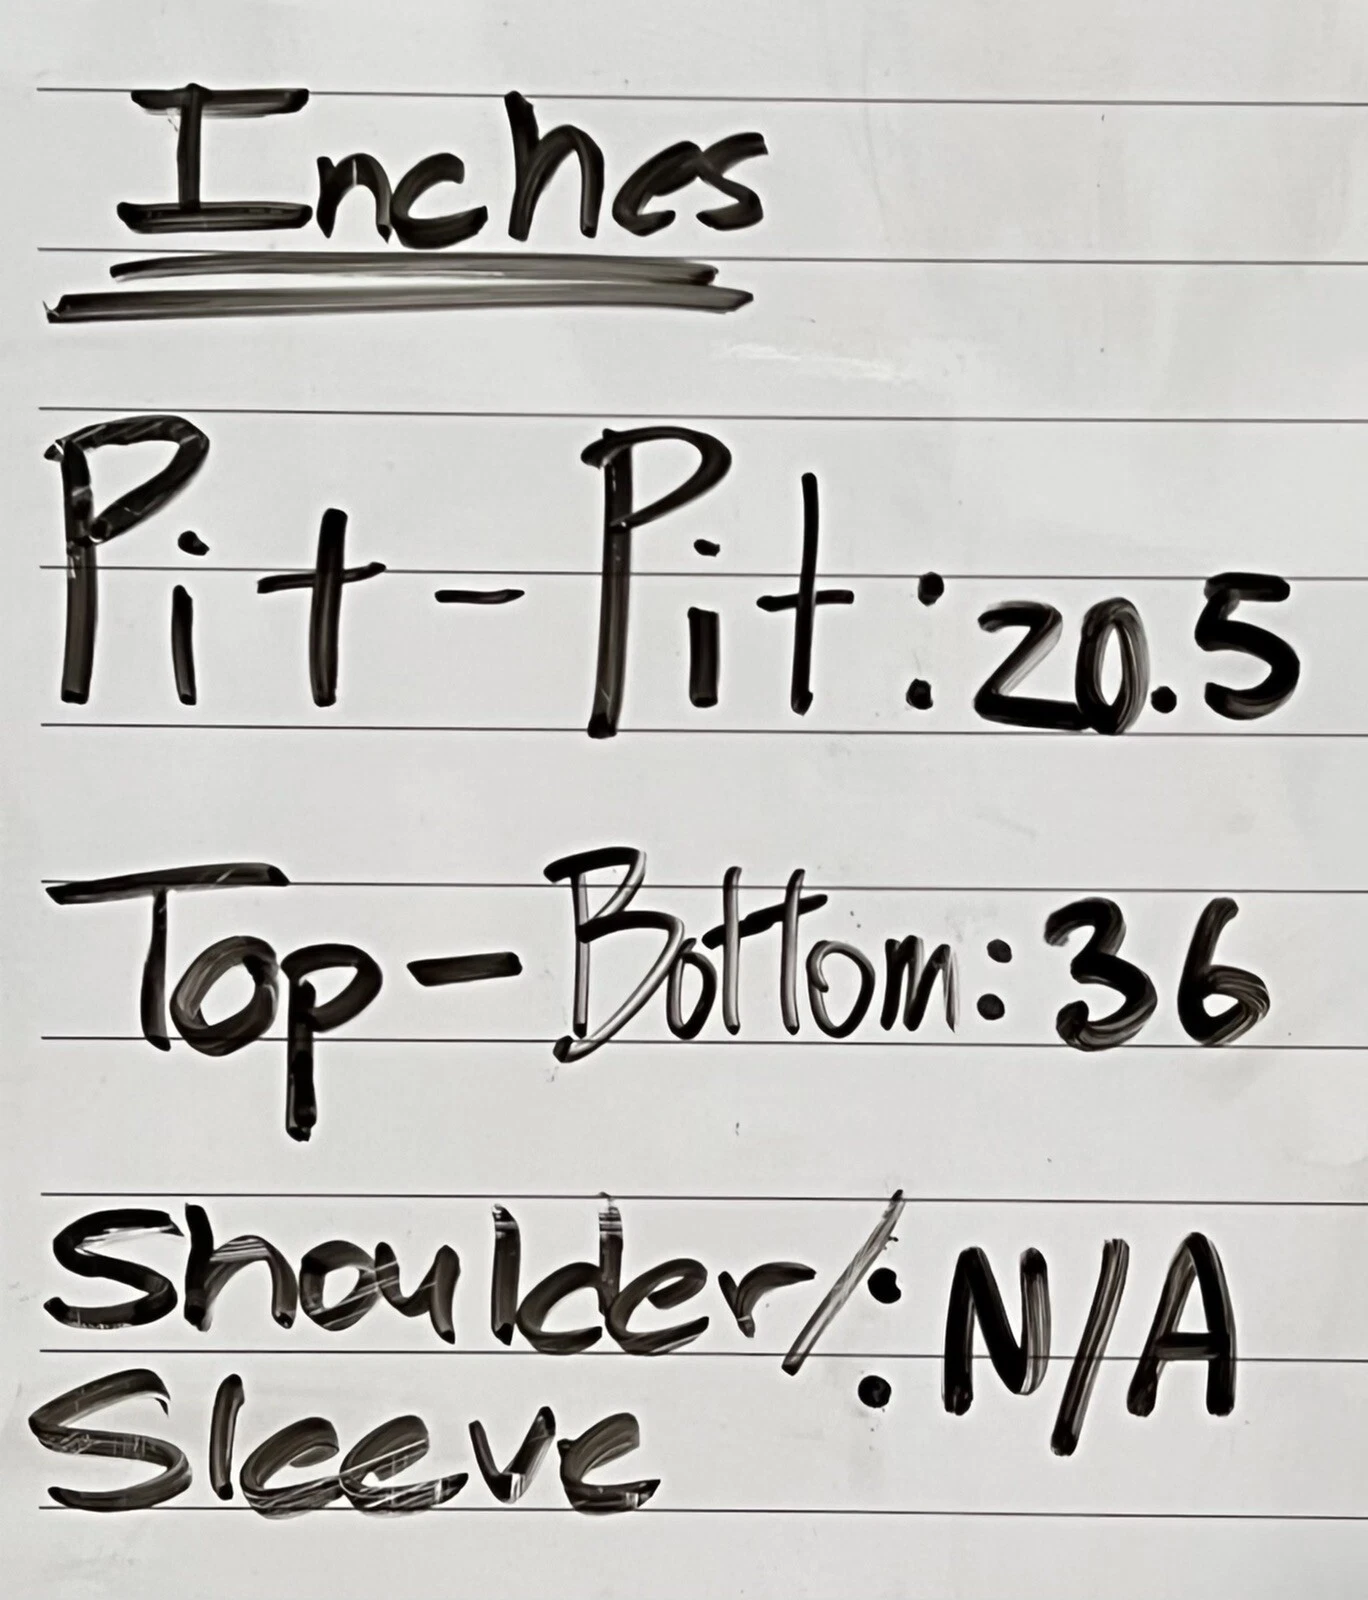 Inches
Pit-Pit:20.5
Top-Bottom:36
Shoulder/:N/A
Sleeve